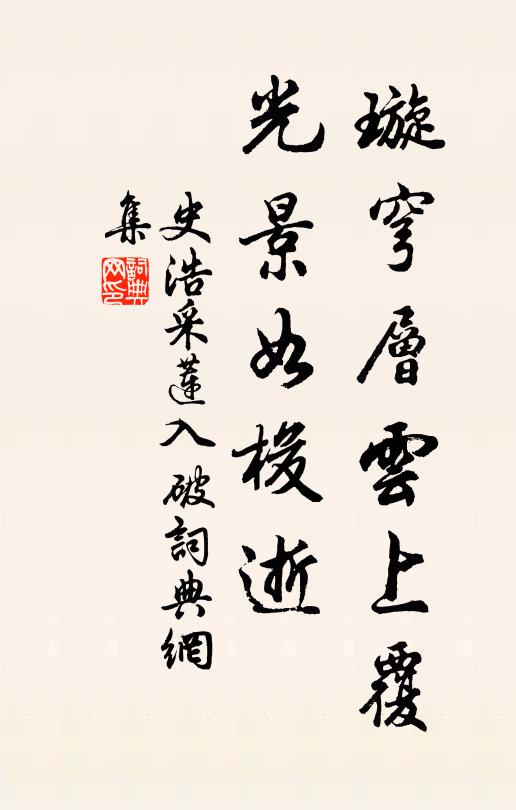 璇穹層雲上覆
光景如梭逝
史浩采蓮入破詞典網
集
詞典网印